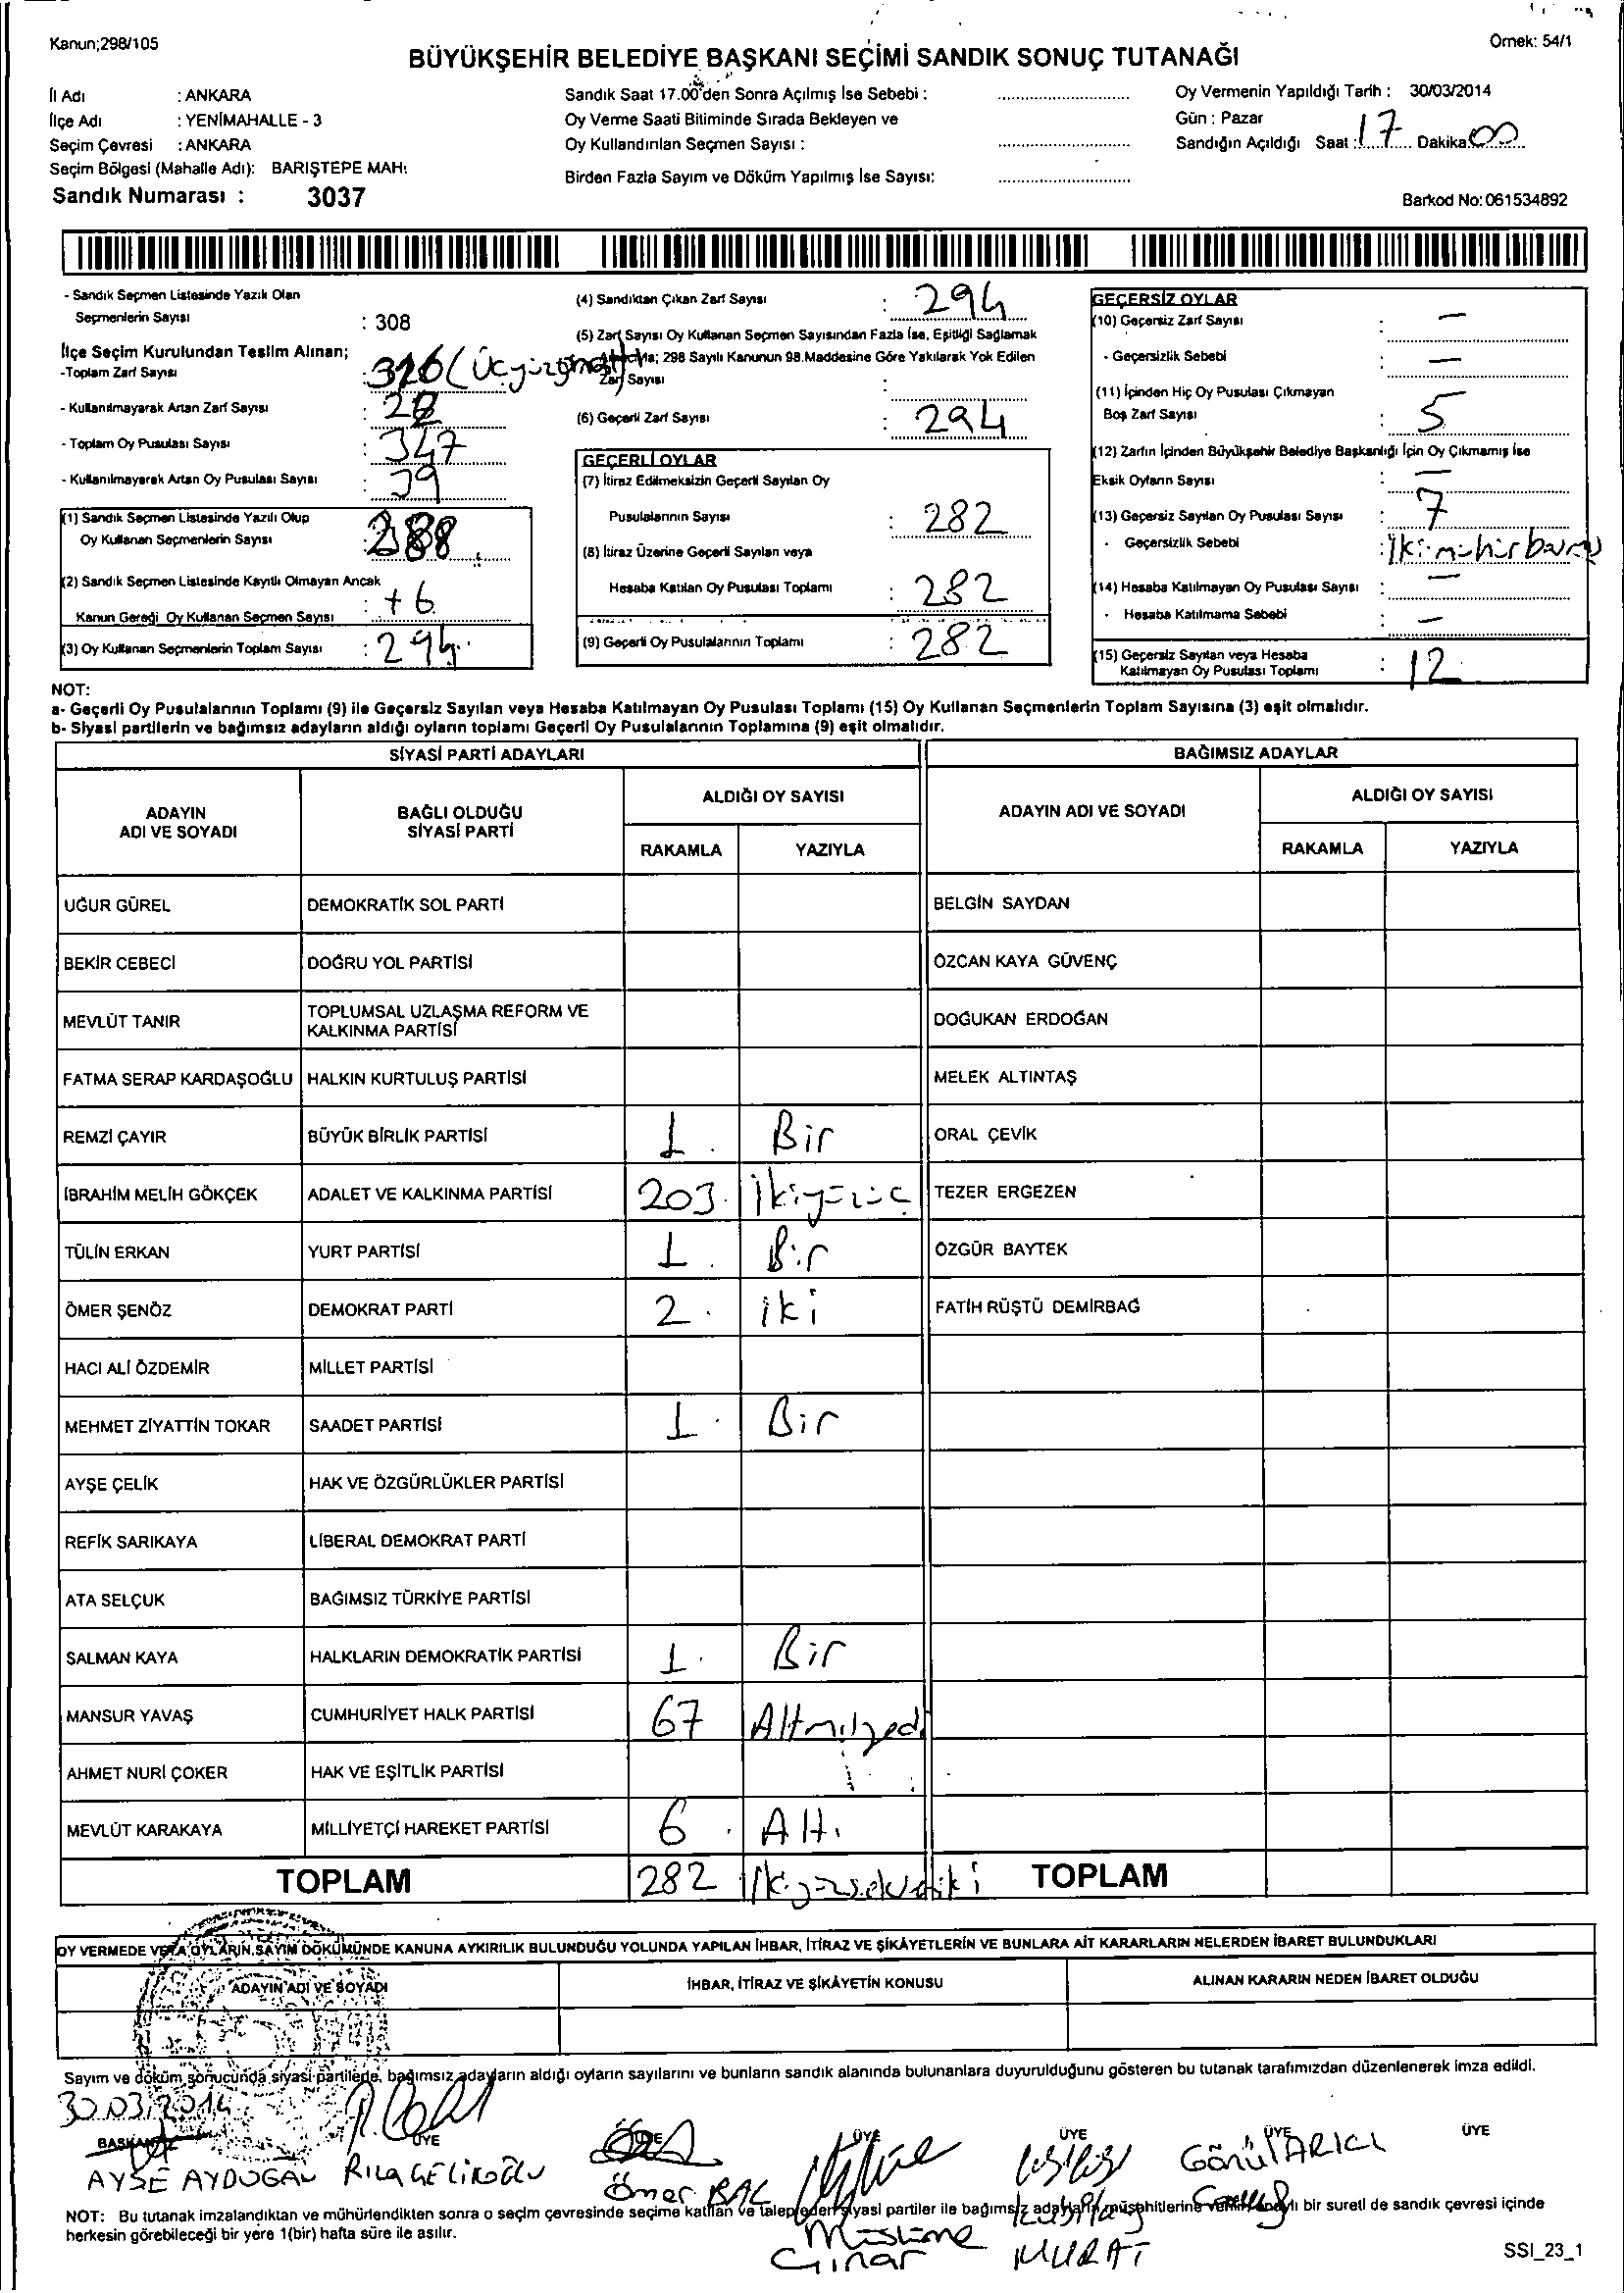 Kanun;298/105
Örnek: 54/1
BÜYÜKŞEHİR BELEDİYE BAŞKANI SEÇİMİ SANDIK SONUÇ TUTANAĞI
İl Adı : ANKARA
İlçe Adı : YENİMAHALLE - 3
Seçim Çevresi : ANKARA
Seçim Bölgesi (Mahalle Adı): BARIŞTEPE MAH.
Sandık Numarası : 3037
Sandık Saat 17.00'den Sonra Açılmış İse Sebebi :
Oy Verme Saati Bitiminde Sırada Bekleyen ve
Oy Kullandırılan Seçmen Sayısı :
Birden Fazla Sayım ve Döküm Yapılmış İse Sayısı:
Oy Vermenin Yapıldığı Tarih : 30/03/2014
Gün : Pazar
Sandığın Açıldığı Saat : 17 Dakika 00
Barkod No: 061534892
- Sandık Seçmen Listesinde Yazılı Olan
Seçmenlerin Sayısı : 308
İlçe Seçim Kurulundan Teslim Alınan;
-Toplam Zarf Sayısı : 316 (Üçyüzonaltı)
- Kullanılmayarak Artan Zarf Sayısı : 22
- Toplam Oy Pusulası Sayısı : 347
- Kullanılmayarak Artan Oy Pusulası Sayısı : 39
(1) Sandık Seçmen Listesinde Yazılı Olup
Oy Kullanan Seçmenlerin Sayısı : 288
(2) Sandık Seçmen Listesinde Kayıtlı Olmayan Ancak
Kanun Gereği Oy Kullanan Seçmen Sayısı : +6
(3) Oy Kullanan Seçmenlerin Toplam Sayısı : 294
(4) Sandıktan Çıkan Zarf Sayısı : 294
(5) Zarf Sayısı Oy Kullanan Seçmen Sayısından Fazla İse, Eşitliği Sağlamak
298 Sayılı Kanunun 98.Maddesine Göre Yakılarak Yok Edilen
Zarf Sayısı :
(6) Geçerli Zarf Sayısı : 294
GEÇERLİ OYLAR
(7) İtiraz Edilmeksizin Geçerli Sayılan Oy
Pusulalarının Sayısı : 282
(8) İtiraz Üzerine Geçerli Sayılan veya
Hesaba Katılan Oy Pusulası Toplamı : 282
(9) Geçerli Oy Pusulalarının Toplamı : 282
GEÇERSİZ OYLAR
(10) Geçersiz Zarf Sayısı : —
- Geçersizlik Sebebi : —
(11) İçinden Hiç Oy Pusulası Çıkmayan
Boş Zarf Sayısı : 5
(12) Zarfın İçinden Büyükşehir Belediye Başkanlığı İçin Oy Çıkmamış İse
Eksik Oyların Sayısı : —
(13) Geçersiz Sayılan Oy Pusulası Sayısı : 7
- Geçersizlik Sebebi : İki mühür
(14) Hesaba Katılmayan Oy Pusulası Sayısı : —
- Hesaba Katılmama Sebebi : —
(15) Geçersiz Sayılan veya Hesaba
Katılmayan Oy Pusulası Toplamı : 12
NOT:
a- Geçerli Oy Pusulalarının Toplamı (9) ile Geçersiz Sayılan veya Hesaba Katılmayan Oy Pusulası Toplamı (15) Oy Kullanan Seçmenlerin Toplam Sayısına (3) eşit olmalıdır.
b- Siyasi partilerin ve bağımsız adayların aldığı oyların toplamı Geçerli Oy Pusulalarının Toplamına (9) eşit olmalıdır.
SİYASİ PARTİ ADAYLARI
BAĞIMSIZ ADAYLAR
ADAYIN
ADI VE SOYADI
BAĞLI OLDUĞU
SİYASİ PARTİ
ALDIĞI OY SAYISI
RAKAMLA YAZIYLA
ADAYIN ADI VE SOYADI
ALDIĞI OY SAYISI
RAKAMLA YAZIYLA
UĞUR GÜREL DEMOKRATİK SOL PARTİ BELGİN SAYDAN
BEKİR CEBECİ DOĞRU YOL PARTİSİ ÖZCAN KAYA GÜVENÇ
MEVLÜT TANIR TOPLUMSAL UZLAŞMA REFORM VE
KALKINMA PARTİSİ DOĞUKAN ERDOĞAN
FATMA SERAP KARDAŞOĞLU HALKIN KURTULUŞ PARTİSİ MELEK ALTINTAŞ
REMZİ ÇAYIR BÜYÜK BİRLİK PARTİSİ 1 Bir ORAL ÇEVİK
İBRAHİM MELİH GÖKÇEK ADALET VE KALKINMA PARTİSİ 203 İkiyüzüç TEZER ERGEZEN
TÜLİN ERKAN YURT PARTİSİ 1 Bir ÖZGÜR BAYTEK
ÖMER ŞENÖZ DEMOKRAT PARTİ 2 iki FATİH RÜŞTÜ DEMİRBAĞ
HACI ALİ ÖZDEMİR MİLLET PARTİSİ
MEHMET ZİYATTİN TOKAR SAADET PARTİSİ 1 Bir
AYŞE ÇELİK HAK VE ÖZGÜRLÜKLER PARTİSİ
REFİK SARIKAYA LİBERAL DEMOKRAT PARTİ
ATA SELÇUK BAĞIMSIZ TÜRKİYE PARTİSİ
SALMAN KAYA HALKLARIN DEMOKRATİK PARTİSİ 1 Bir
MANSUR YAVAŞ CUMHURİYET HALK PARTİSİ 67 Altmışyedi
AHMET NURİ ÇOKER HAK VE EŞİTLİK PARTİSİ
MEVLÜT KARAKAYA MİLLİYETÇİ HAREKET PARTİSİ 6 Altı
TOPLAM 282 İkiyüzsekseniki TOPLAM
OY VERMEDE VEYA OYLARIN SAYIM DÖKÜMÜNDE KANUNA AYKIRILIK BULUNDUĞU YOLUNDA YAPILAN İHBAR, İTİRAZ VE ŞİKÂYETLERİN VE BUNLARA AİT KARARLARIN NELERDEN İBARET BULUNDUKLARI
ADAYIN ADI VE SOYADI
İHBAR, İTİRAZ VE ŞİKÂYETİN KONUSU
ALINAN KARARIN NEDEN İBARET OLDUĞU
Sayım ve döküm sonucunda siyasi partilerle, bağımsız adayların aldığı oyların sayılarını ve bunların sandık alanında bulunanlara duyurulduğunu gösteren bu tutanak tarafımızdan düzenlenerek imza edildi.
30.03.2014
BAŞKAN ÜYE ÜYE ÜYE ÜYE ÜYE ÜYE
AYŞE AYDOĞAN
Ömer BAL
Müslüme
Çınar
MURAT
Gönül ARICI
NOT: Bu tutanak imzalandıktan ve mühürlendikten sonra o seçim çevresinde seçime katılan ve talep eden siyasi partiler ile bağımsız adayların müşahitlerine bir sureti de sandık çevresi içinde
herkesin görebileceği bir yere 1(bir) hafta süre ile asılır.
SSI_23_1